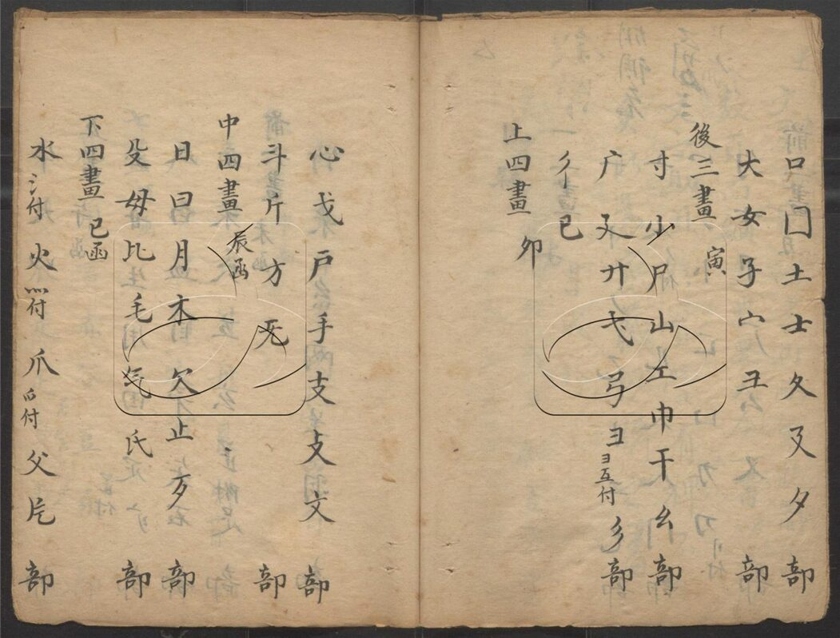 口囗土士夂夊夕部
大女子宀彑部
後三畫 寅
寸少尸山工巾干幺部
广廴廾弋弓彐ヨ互付彡部
彳已
上四畫 卯
心戈戸手支攴文部
斗斤方旡部
中四畫 辰函
日曰月木欠止歹部
殳毋比毛气氏部
下四畫 巳函
水氵付火灬付爪爫付父片部